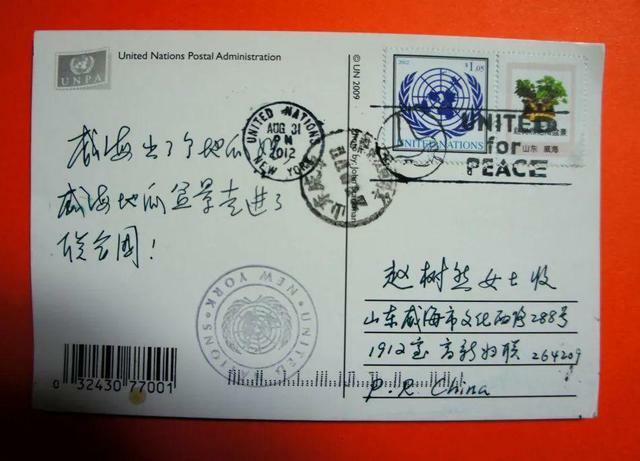 UNPA
United Nations Postal Administration
© UN 2009
2012
$1.05
UNITED NATIONS
山东 威海
UNITED NATIONS
AUG 31
PM
2012
NEW YORK
UNITED
for
PEACE
威海出了个地瓜
威海地瓜盆景走进了
联合国!
赵树然女士收
山东威海市文化西路288号
1912室 高新妇联 264209
P.R. China
UNITED NATIONS · NEW YORK
0 32430 77001